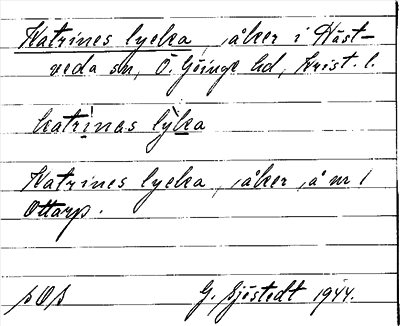 Katrines lycka, åker i Häst-
veda sn, Ö. Göinge hd, Krist. l.
katrinas lỳka
Katrines lycka, åker, å nr 1
Ottarp.
pOp
G. Sjöstedt 1944.